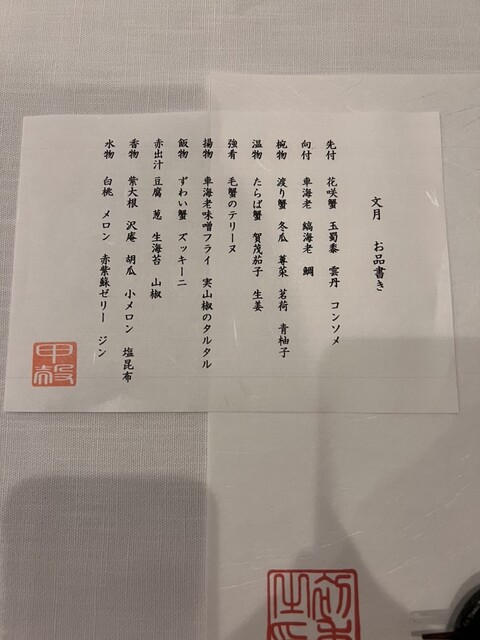 文月 お品書き
先付 花咲蟹 玉蜀黍 雲丹 コンソメ
向付 車海老 縞海老 鯛
椀物 渡り蟹 冬瓜 蓴菜 茗荷 青柚子
温物 たらば蟹 賀茂茄子 生姜
強肴 毛蟹のテリーヌ
揚物 車海老味噌フライ 実山椒のタルタル
飯物 ずわい蟹 ズッキーニ
赤出汁 豆腐 葱 生海苔 山椒
香物 紫大根 沢庵 胡瓜 小メロン 塩昆布
水物 白桃 メロン 赤紫蘇ゼリー ジン
甲殻